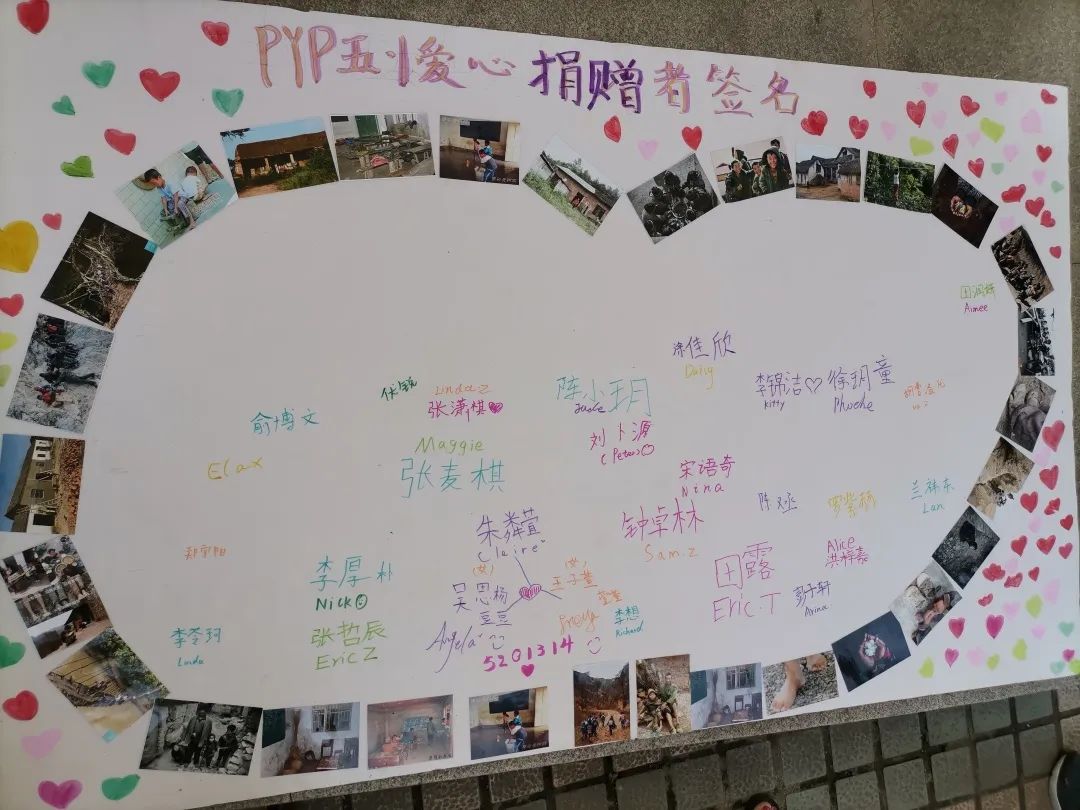 PYP五(1)爱心捐赠者签名
田润妍
Aimee
涂佳欣
Daisy
李锦洁♡
Kitty
徐玥童
Phoebe
陈小玥
Linda Z
张潇棋
伏锐
俞博文
Maggie
张麦棋
刘卜源
(Peter)
Elax
宋语奇
Nina
钟卓林
Sam.Z
陈义丞
兰祎东
Lan
朱粦萱
Claire
郑宇阳
李厚朴
Nick
(女)
吴思杨
豆豆
Angela
(女)
王子萱
萱萱
李想
Richard
田露
Eric.T
彭子轩
Arina
Alice
洪梓嘉
李苓珂
Linda
张哲辰
Eric Z
5201314